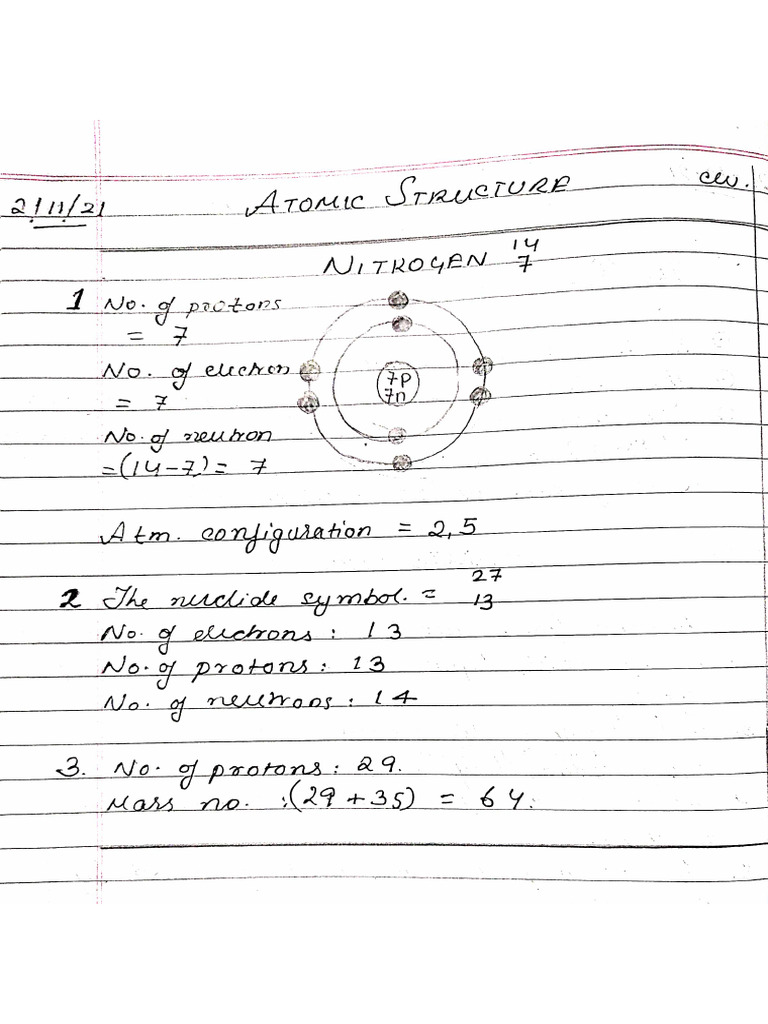 ATOMIC STRUCTURE
cw.
2/11/21
NITROGEN 14 7
1 No. of protons
= 7
No. of electron
= 7
No. of neutron
=(14-7)= 7
7p
7n
Atm. configuration = 2,5
2 The nuclide symbol. = 27 13
No. of electrons : 13
No. of protons : 13
No. of neutrons : 14
3. No. of protons : 29.
Mass no. :(29+35) = 64.